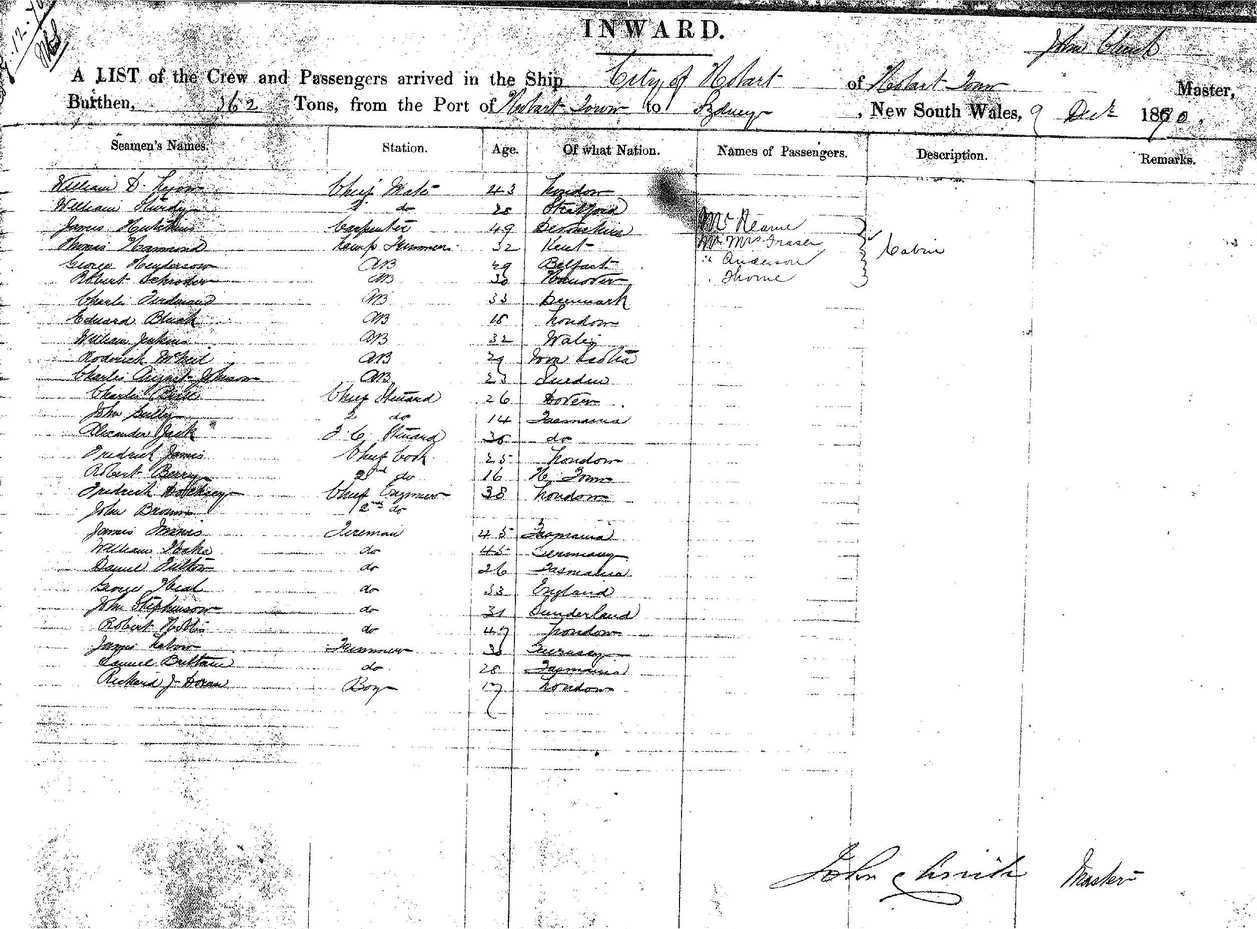 INWARD.
John Clinch
A LIST of the Crew and Passengers arrived in the Ship City of Hobart of Hobart Town Master,
Burthen, 362 Tons, from the Port of Hobart Town to Sydney, New South Wales, 9 Decr 1870.
Seamen's Names. Station. Age. Of what Nation. Names of Passengers. Description. Remarks.
William D. Lyon Chief Mate 43 London
William Sturdy 2 do 28 Stratford
James Hutchins Carpenter 49 Devonshire Mr Hearne
Thomas Hammond Lamp Trimmer 32 Kent Mr Mrs Fraser
George Henderson AB 29 Belfast " Anderson Cabin
Robert Schroder AB 30 Hanover Thorne
Charles Ferdinand AB 33 Denmark
Edward Black AB 18 London
William Jenkins AB 32 Wales
Roderick McNeil AB 29 Nova Scotia
Charles August Johnson AB 23 Sweden
Charles Chief Steward 26 Dover
John Gully 2 do 14 Tasmania
Alexander Jack F. C. Steward 36 do
Fredrick James Chief Cook 25 London
Robert Berry 2nd do 16 H. Town
Fredrick Chief Engineer 38 London
John Brown 2nd do
James Fireman 45 Tasmania
William do 45 Germany
Daniel do 26 Tasmania
George Neal do 33 England
John Stephenson do 31 Sunderland
Robert do 47 London
James Trimmer 30 Guernsey
Samuel Brittain do 28 Tasmania
Richard J. Doran Boy 17 London
John Clinch Master